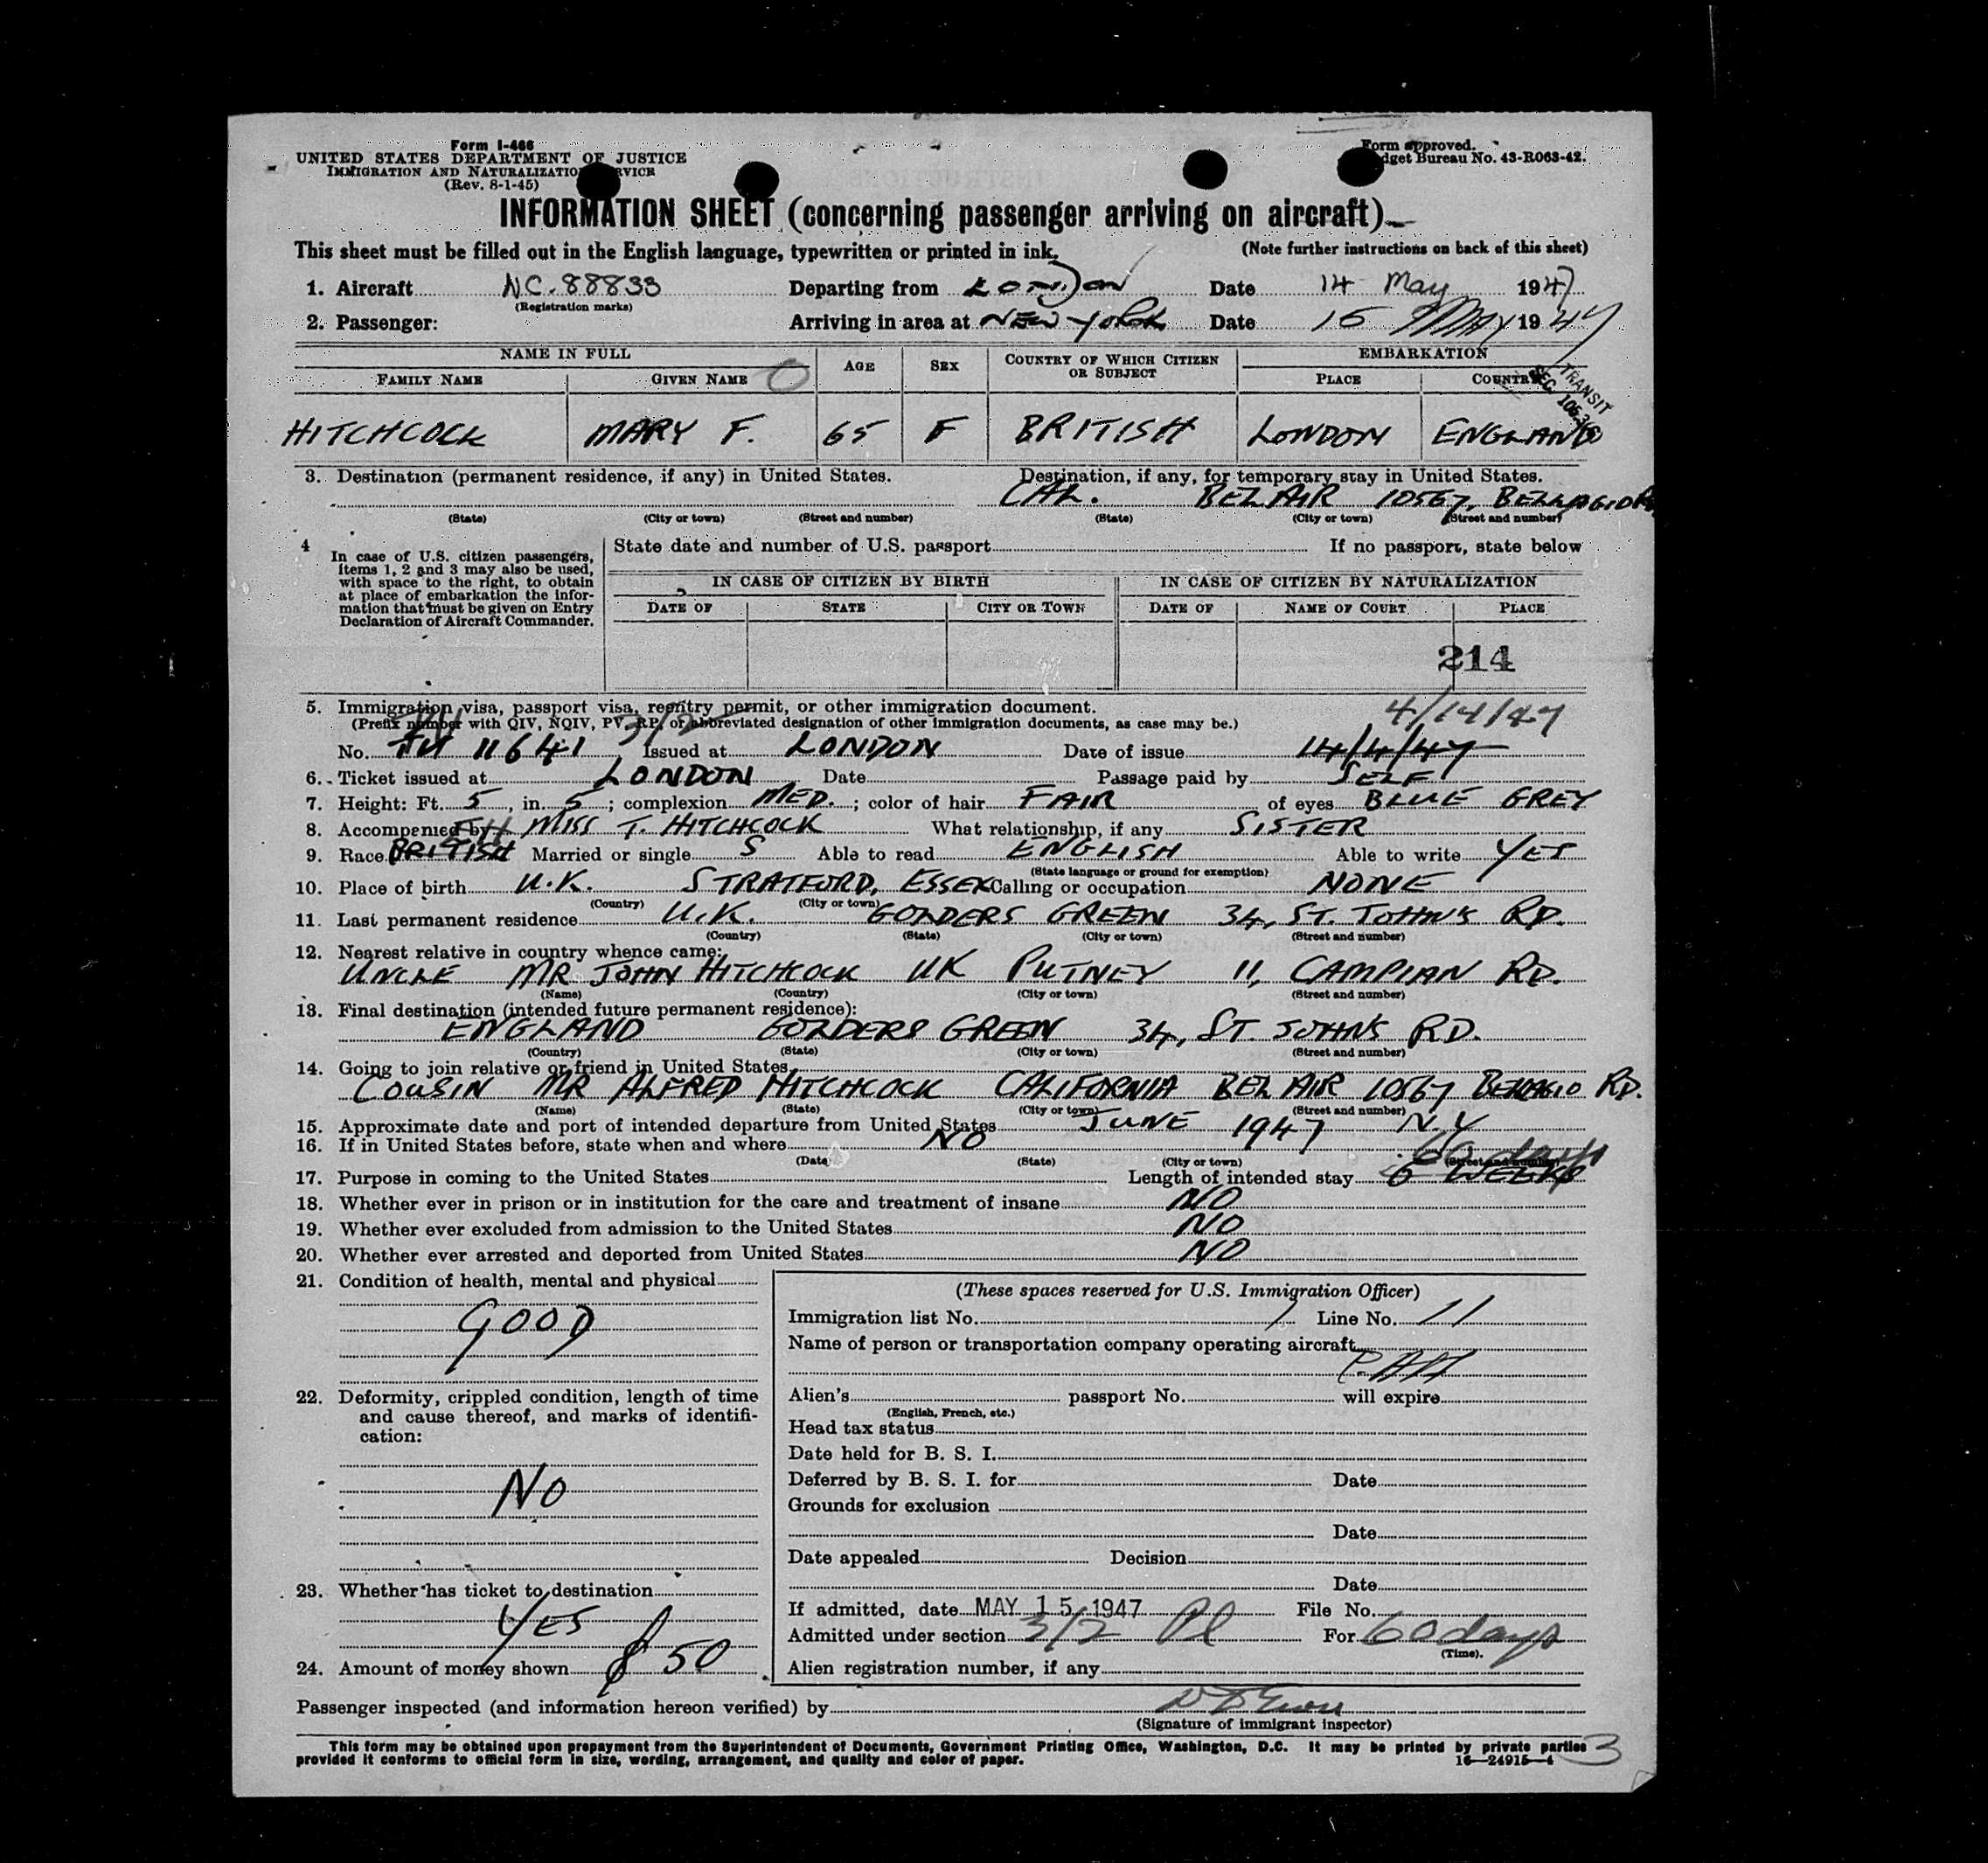 Form I-466
UNITED STATES DEPARTMENT OF JUSTICE
IMMIGRATION AND NATURALIZATION SERVICE
(Rev. 8-1-45)
Form approved.
Budget Bureau No. 43-R063-42.
INFORMATION SHEET (concerning passenger arriving on aircraft)
This sheet must be filled out in the English language, typewritten or printed in ink. (Note further instructions on back of this sheet)
1. Aircraft NC.88833 Departing from LONDON Date 14 May 1947
(Registration marks)
2. Passenger: Arriving in area at NEW YORK Date 15 MAY 1947
NAME IN FULL AGE SEX COUNTRY OF WHICH CITIZEN OR SUBJECT EMBARKATION
FAMILY NAME GIVEN NAME PLACE COUNTRY
TRANSIT
HITCHCOCK MARY F. 65 F BRITISH LONDON ENGLAND
3. Destination (permanent residence, if any) in United States. Destination, if any, for temporary stay in United States.
CAL. BEL AIR 10567, BELLAGIO RD
(State) (City or town) (Street and number) (State) (City or town) (Street and number)
4 In case of U.S. citizen passengers, items 1, 2 and 3 may also be used, with space to the right, to obtain at place of embarkation the information that must be given on Entry Declaration of Aircraft Commander.
State date and number of U.S. passport If no passport, state below
IN CASE OF CITIZEN BY BIRTH IN CASE OF CITIZEN BY NATURALIZATION
DATE OF STATE CITY OR TOWN DATE OF NAME OF COURT PLACE
214
5. Immigration visa, passport visa, reentry permit, or other immigration document.
(Prefix number with QIV, NQIV, PV, RP, or abbreviated designation of other immigration documents, as case may be.)
3/2 4/14/47
No. 11641 Issued at LONDON Date of issue 14/4/47
6. Ticket issued at LONDON Date Passage paid by SELF
7. Height: Ft. 5, in. 5; complexion MED.; color of hair FAIR of eyes BLUE GREY
8. Accompanied by MISS T. HITCHCOCK What relationship, if any SISTER
9. Race BRITISH Married or single S Able to read ENGLISH Able to write YES
(State language or ground for exemption)
10. Place of birth U.K. STRATFORD, ESSEX Calling or occupation NONE
(Country) (City or town)
11. Last permanent residence U.K. GOLDERS GREEN 34, ST. JOHN'S RD.
(Country) (State) (City or town) (Street and number)
12. Nearest relative in country whence came:
UNCLE MR JOHN HITCHCOCK UK PUTNEY 11, CAMPIAN RD.
(Name) (Country) (City or town) (Street and number)
13. Final destination (intended future permanent residence):
ENGLAND GOLDERS GREEN 34, ST. JOHN'S RD.
(Country) (State) (City or town) (Street and number)
14. Going to join relative or friend in United States
COUSIN MR ALFRED HITCHCOCK CALIFORNIA BEL AIR 10567 BELLAGIO RD.
(Name) (State) (City or town) (Street and number)
15. Approximate date and port of intended departure from United States JUNE 1947 N.Y
16. If in United States before, state when and where NO
60 days
(Date) (State) (City or town) (Street and number)
17. Purpose in coming to the United States Length of intended stay 6 WEEKS
18. Whether ever in prison or in institution for the care and treatment of insane NO
19. Whether ever excluded from admission to the United States NO
20. Whether ever arrested and deported from United States NO
21. Condition of health, mental and physical
GOOD
22. Deformity, crippled condition, length of time and cause thereof, and marks of identification:
NO
23. Whether has ticket to destination
YES
24. Amount of money shown $ 50
(These spaces reserved for U.S. Immigration Officer)
Immigration list No. 1 Line No. 11
Name of person or transportation company operating aircraft
P.AA
Alien's passport No. will expire
(English, French, etc.)
Head tax status
Date held for B. S. I.
Deferred by B. S. I. for Date
Grounds for exclusion
Date
Date appealed Decision
Date
If admitted, date MAY 15 1947 File No.
Admitted under section 3/2 For 60 days
(Time).
Alien registration number, if any
Passenger inspected (and information hereon verified) by
(Signature of immigrant inspector)
This form may be obtained upon prepayment from the Superintendent of Documents, Government Printing Office, Washington, D.C. It may be printed by private parties
provided it conforms to official form in size, wording, arrangement, and quality and color of paper. 16—24915-4
3